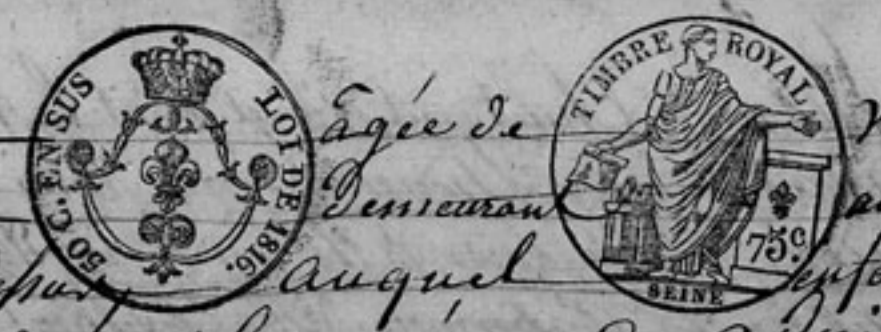 50 C. EN SUS
LOI DE 1816.
TIMBRE ROYAL
75c.
SEINE
âgée de
demeuran
auquel